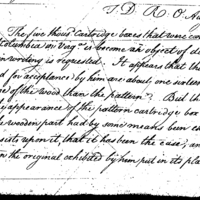 T. D. R. O. Au
The five thous.d Cartridge boxes that were con
Columbia on Vaq.n is become an object of di
in wording is requested. It appears that th
d for acceptance) by him are about, one
of the wood than the pattern. But th
appearance of the pattern cartridge box
wooden part had by some means been
sists upon it, that it has been the case; an
n the original exhibited by him put in its pla